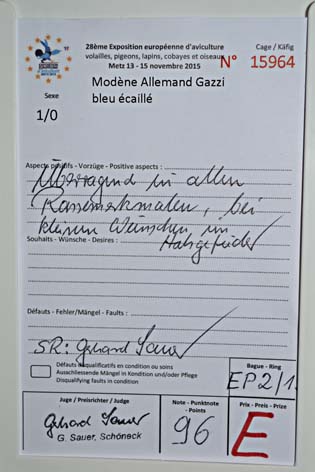 28ème Exposition européenne d'aviculture
volailles, pigeons, lapins, cobayes et oiseaux
Metz 13 - 15 novembre 2015
Cage / Käfig
N° 15964
Modène Allemand Gazzi
bleu écaillé
Sexe
1/0
Aspects positifs - Vorzüge - Positive aspects :
Überragend in allen
Rassemerkmalen, bei
kleinen Wünschen im
Halsgefieder
Souhaits - Wünsche - Desires :
Défauts - Fehler/Mängel - Faults :
SR: Gerhard Sauer
Défauts disqualificatifs en condition ou soins
Ausschliessende Mängel in Kondition und/oder Pflege
Disqualifying faults in condition
Bague - Ring
EP2/1
Juge / Preisrichter / Judge
Gerhard Sauer
G. Sauer, Schöneck
Note - Punktnote
- Points
96
Prix - Preis - Prize
E